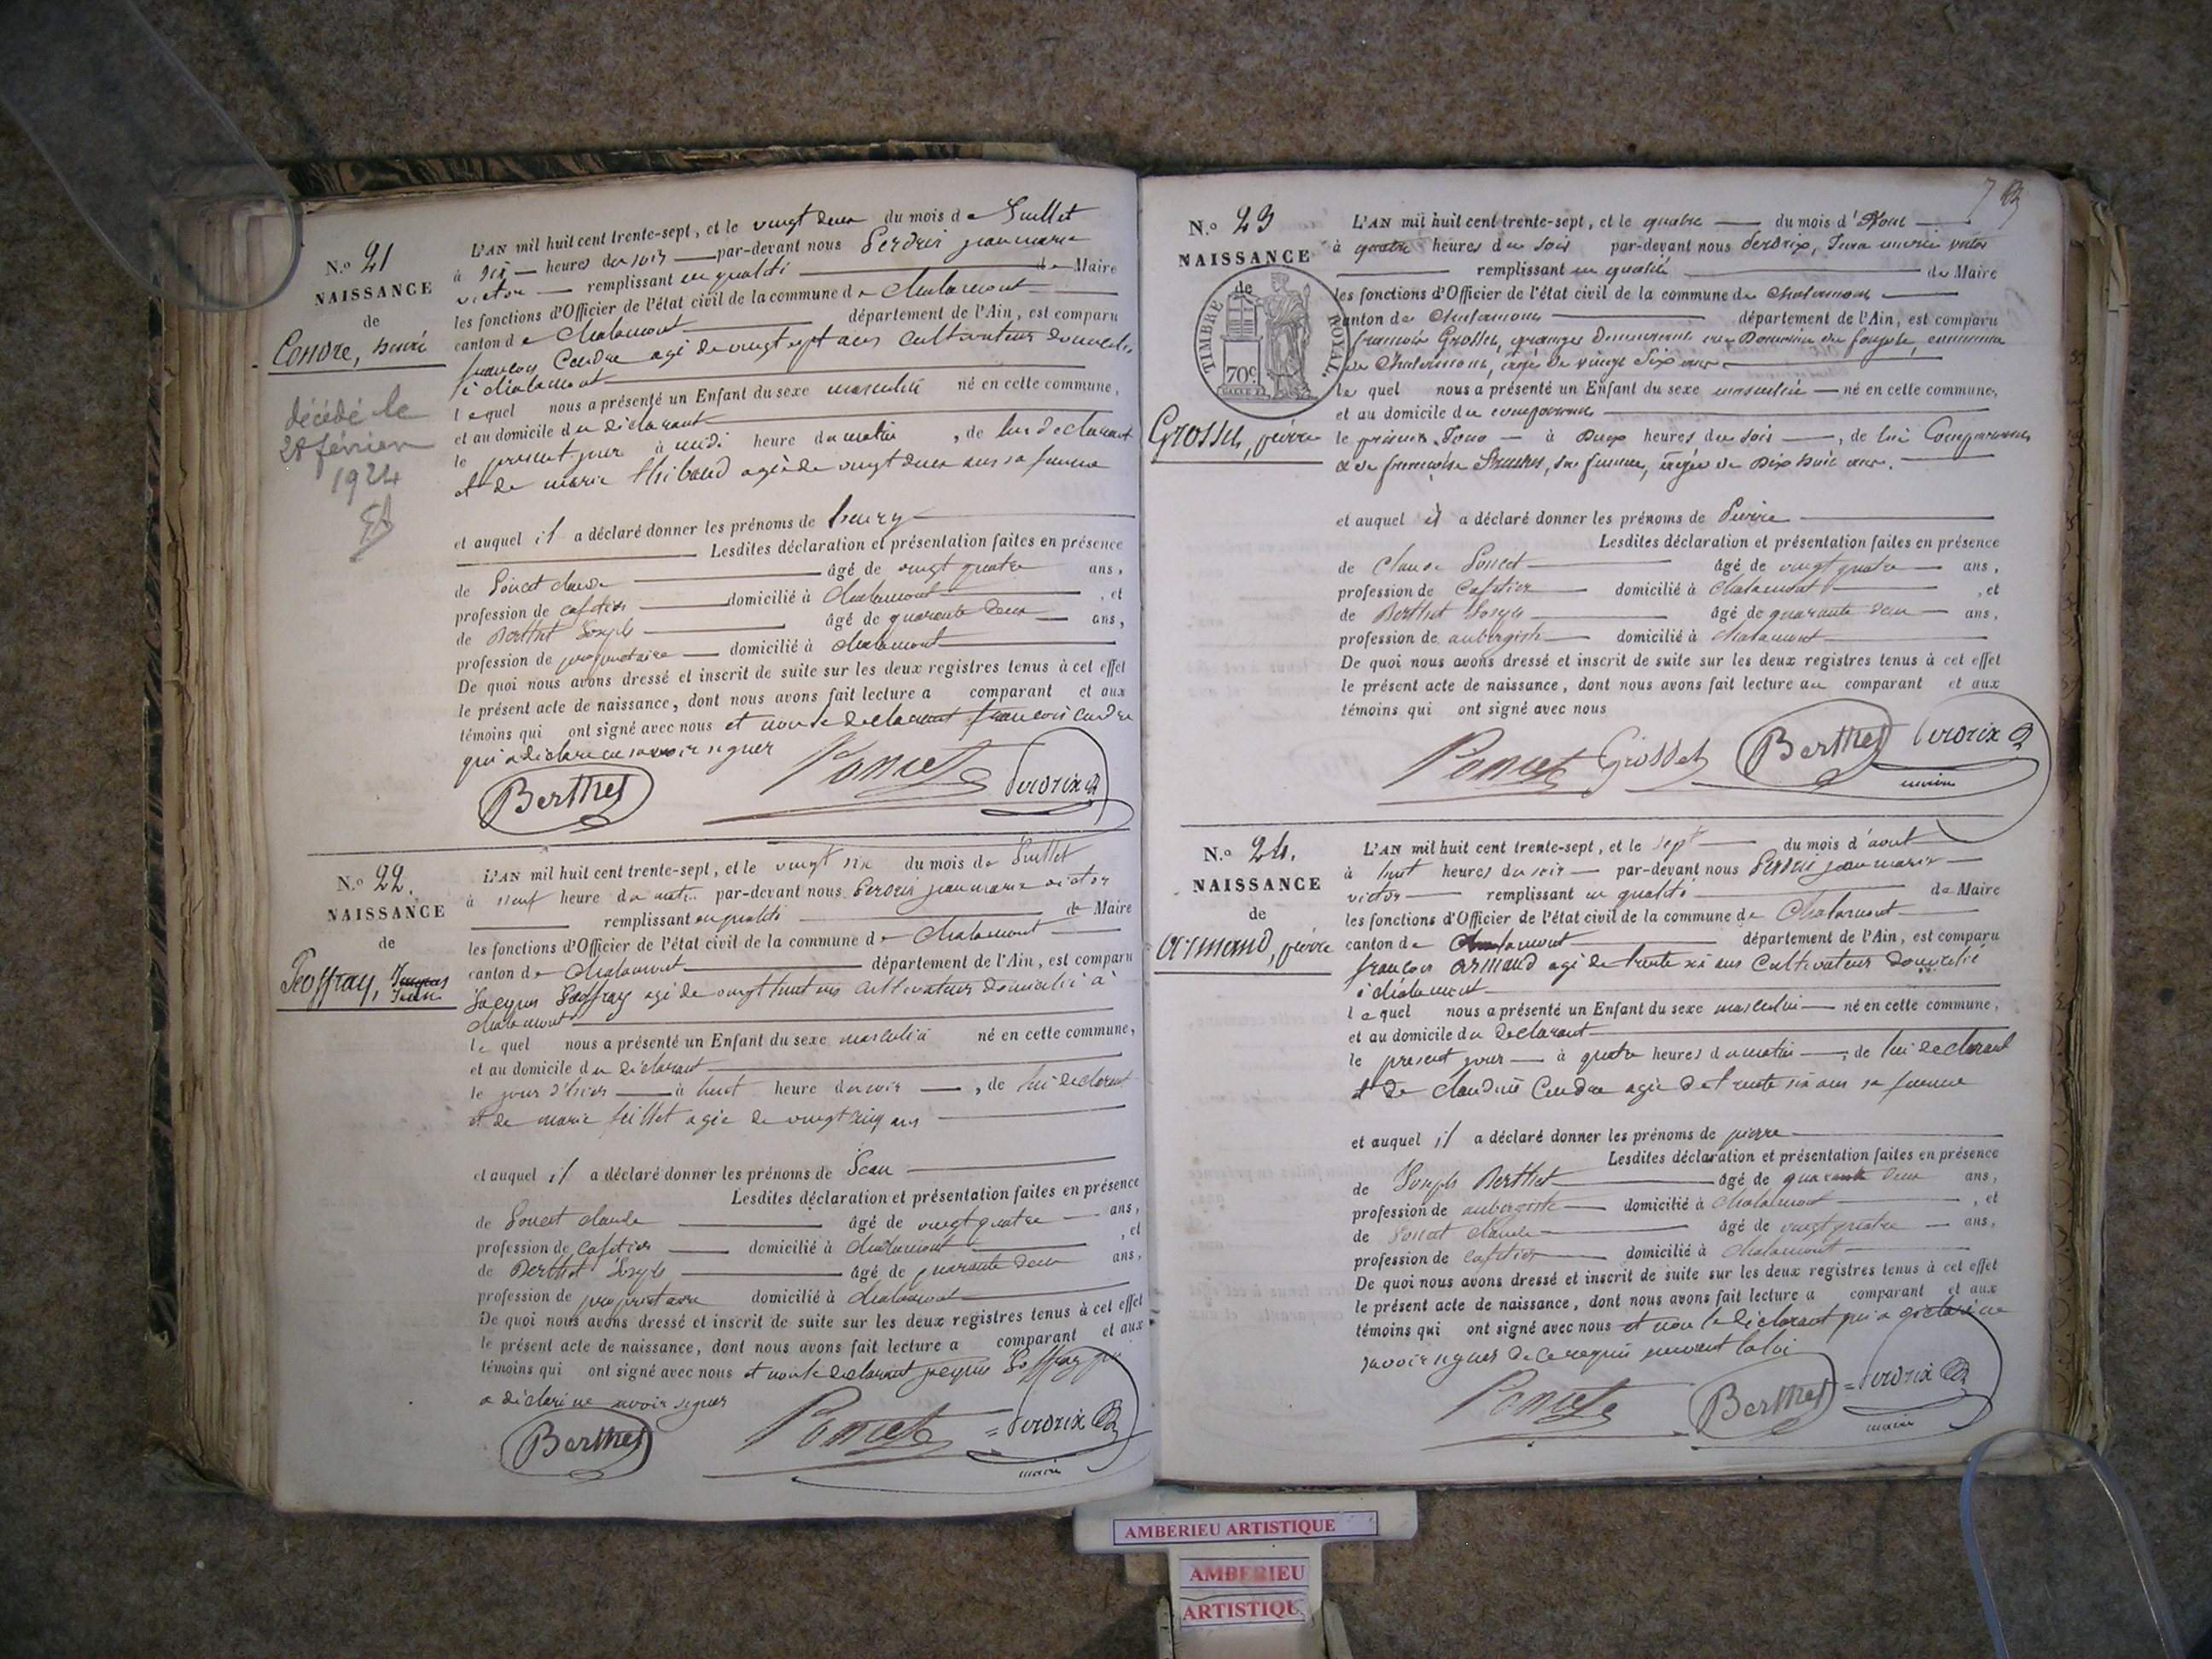 N.o 21
NAISSANCE
de
Cendre, henri
décédé le
28 février
1924
L'AN mil huit cent trente-sept, et le vingt deux du mois de Juillet
à six heures du soir par-devant nous Perdrix jean marie
victor remplissant en qualité de Maire
les fonctions d'Officier de l'état civil de la commune de Chalamont
canton de Chalamont département de l'Ain, est comparu
françois Cendre agé de vingt sept ans Cultivateur domicilié
à chalamont
lequel nous a présenté un Enfant du sexe masculin né en cette commune,
et au domicile du déclarant
le present jour à midi heure du matin, de lui declarant
et de marie thibaud agée de vingt deux ans sa femme
et auquel il a déclaré donner les prénoms de henry
Lesdites déclaration et présentation faites en présence
de Poncet claude âgé de vingt quatre ans,
profession de cafetier domicilié à Chalamont, et
de Berthet Joseph âgé de quarante deux ans,
profession de proprietaire domicilié à chalamont
De quoi nous avons dressé et inscrit de suite sur les deux registres tenus à cet effet
le présent acte de naissance, dont nous avons fait lecture a comparant et aux
témoins qui ont signé avec nous et non le declarant françois Cendre
qui a déclaré ne savoir signer
Berthet Poncet Perdrix
N.o 22.
NAISSANCE
de
Geoffray, Jacques
Jean
L'AN mil huit cent trente-sept, et le vingt six du mois de Juillet
à neuf heure du matin par-devant nous Perdrix jean marie victor
remplissant en qualité de Maire
les fonctions d'Officier de l'état civil de la commune de Chalamont
canton de Chalamont département de l'Ain, est comparu
Jacques Geoffray agé de vingt huit ans cultivateur domicilié à
chalamont
le quel nous a présenté un Enfant du sexe masculin né en cette commune,
et au domicile du déclarant
le jour d'hier à huit heure du soir, de lui declarant
et de marie agée de vingt cinq ans
et auquel il a déclaré donner les prénoms de Jean
Lesdites déclaration et présentation faites en présence
de Poncet claude âgé de vingt quatre ans,
profession de Cafetier domicilié à chalamont, et
de Berthet Joseph âgé de quarante deux ans,
profession de proprietaire domicilié à chalamont
De quoi nous avons dressé et inscrit de suite sur les deux registres tenus à cet effet
le présent acte de naissance, dont nous avons fait lecture a comparant et aux
témoins qui ont signé avec nous et non le declarant jacques Geoffray qui
a déclaré ne savoir signer
Berthet Poncet = Perdrix
maire
N.o 23
NAISSANCE
de
TIMBRE ROYAL.
70c
Grosset, pierre
L'AN mil huit cent trente-sept, et le quatre du mois d'Aout
à quatre heures du soir par-devant nous Perdrix, Jean marie victor
remplissant en qualité de Maire
les fonctions d'Officier de l'état civil de la commune de Chalamont
canton de Chalamont département de l'Ain, est comparu
françois Grosset, granger demeurant au Domaine du, commune
de Chalamont, âgé de vingt six ans
le quel nous a présenté un Enfant du sexe masculin né en cette commune,
et au domicile du comparant
le premier Aout à onze heures du soir, de lui Comparant
et de françoise, sa femme, âgée de dix huit ans.
et auquel il a déclaré donner les prénoms de Pierre
Lesdites déclaration et présentation faites en présence
de Claude Poncet âgé de vingt quatre ans,
profession de Cafetier domicilié à Chalamont, et
de Berthet Joseph âgé de quarante deux ans,
profession de aubergiste domicilié à chalamont
De quoi nous avons dressé et inscrit de suite sur les deux registres tenus à cet effet
le présent acte de naissance, dont nous avons fait lecture au comparant et aux
témoins qui ont signé avec nous
Poncet Grosset Berthet Perdrix
maire
N.o 24.
NAISSANCE
de
Armand, pierre
L'AN mil huit cent trente-sept, et le sept du mois d'aout
à huit heures du soir par-devant nous Perdrix jean marie
victor remplissant en qualité de Maire
les fonctions d'Officier de l'état civil de la commune de Chalamont
canton de Chalamont département de l'Ain, est comparu
françois Armand agé de trente six ans Cultivateur domicilié
à chalamont
lequel nous a présenté un Enfant du sexe masculin né en cette commune,
et au domicile du declarant
le present jour à quatre heures du matin, de lui declarant
et de claudine Cendre agée de trente six ans sa femme
et auquel il a déclaré donner les prénoms de pierre
Lesdites déclaration et présentation faites en présence
de Joseph Berthet âgé de quarante deux ans,
profession de aubergiste domicilié à Chalamont, et
de Poncet claude âgé de vingt quatre ans,
profession de Cafetier domicilié à chalamont
De quoi nous avons dressé et inscrit de suite sur les deux registres tenus à cet effet
le présent acte de naissance, dont nous avons fait lecture a comparant et aux
témoins qui ont signé avec nous et non le déclarant qui a declaré ne
savoir signer de ce requis suivant la loi
Poncet Berthet = Perdrix
maire
AMBERIEU ARTISTIQUE
AMBERIEU
ARTISTIQUE